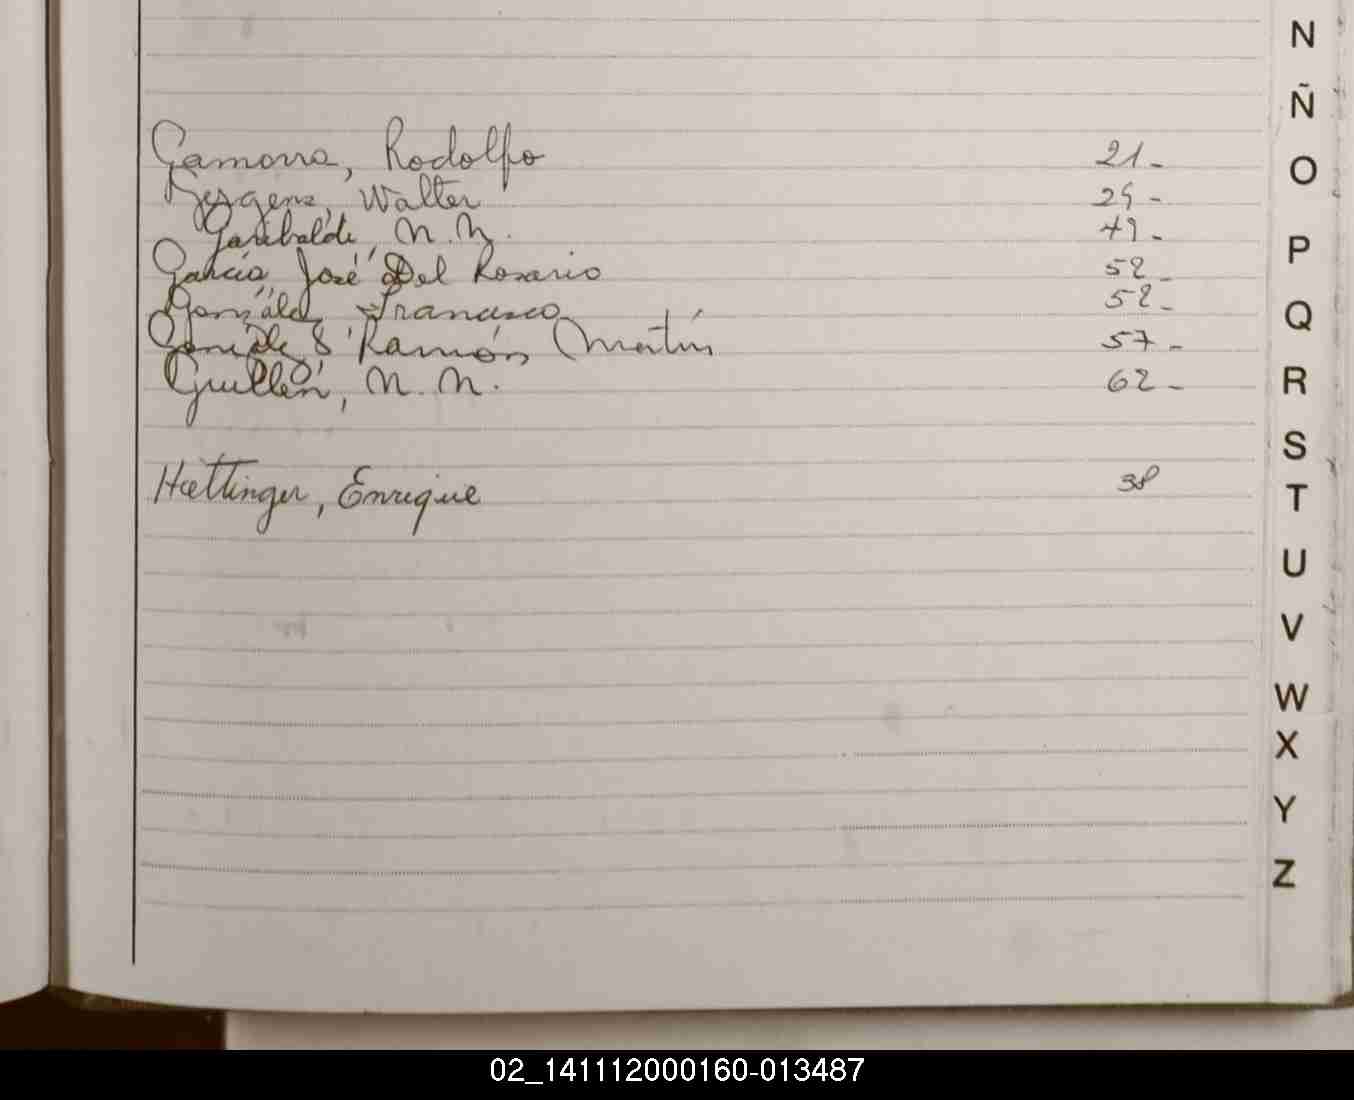 N
Ñ
Gamarra, Rodolfo 21-
O
Gergens, Walter 25-
Garibaldi, N.N. 49-
P
García, José Del Rosario 52-
González, Francisco 52-
Q
Ramón Martín 57-
Guillén, N.N. 62-
R
S
Hættinger, Enrique 38
T
U
V
W
X
Y
Z
02_141112000160-013487